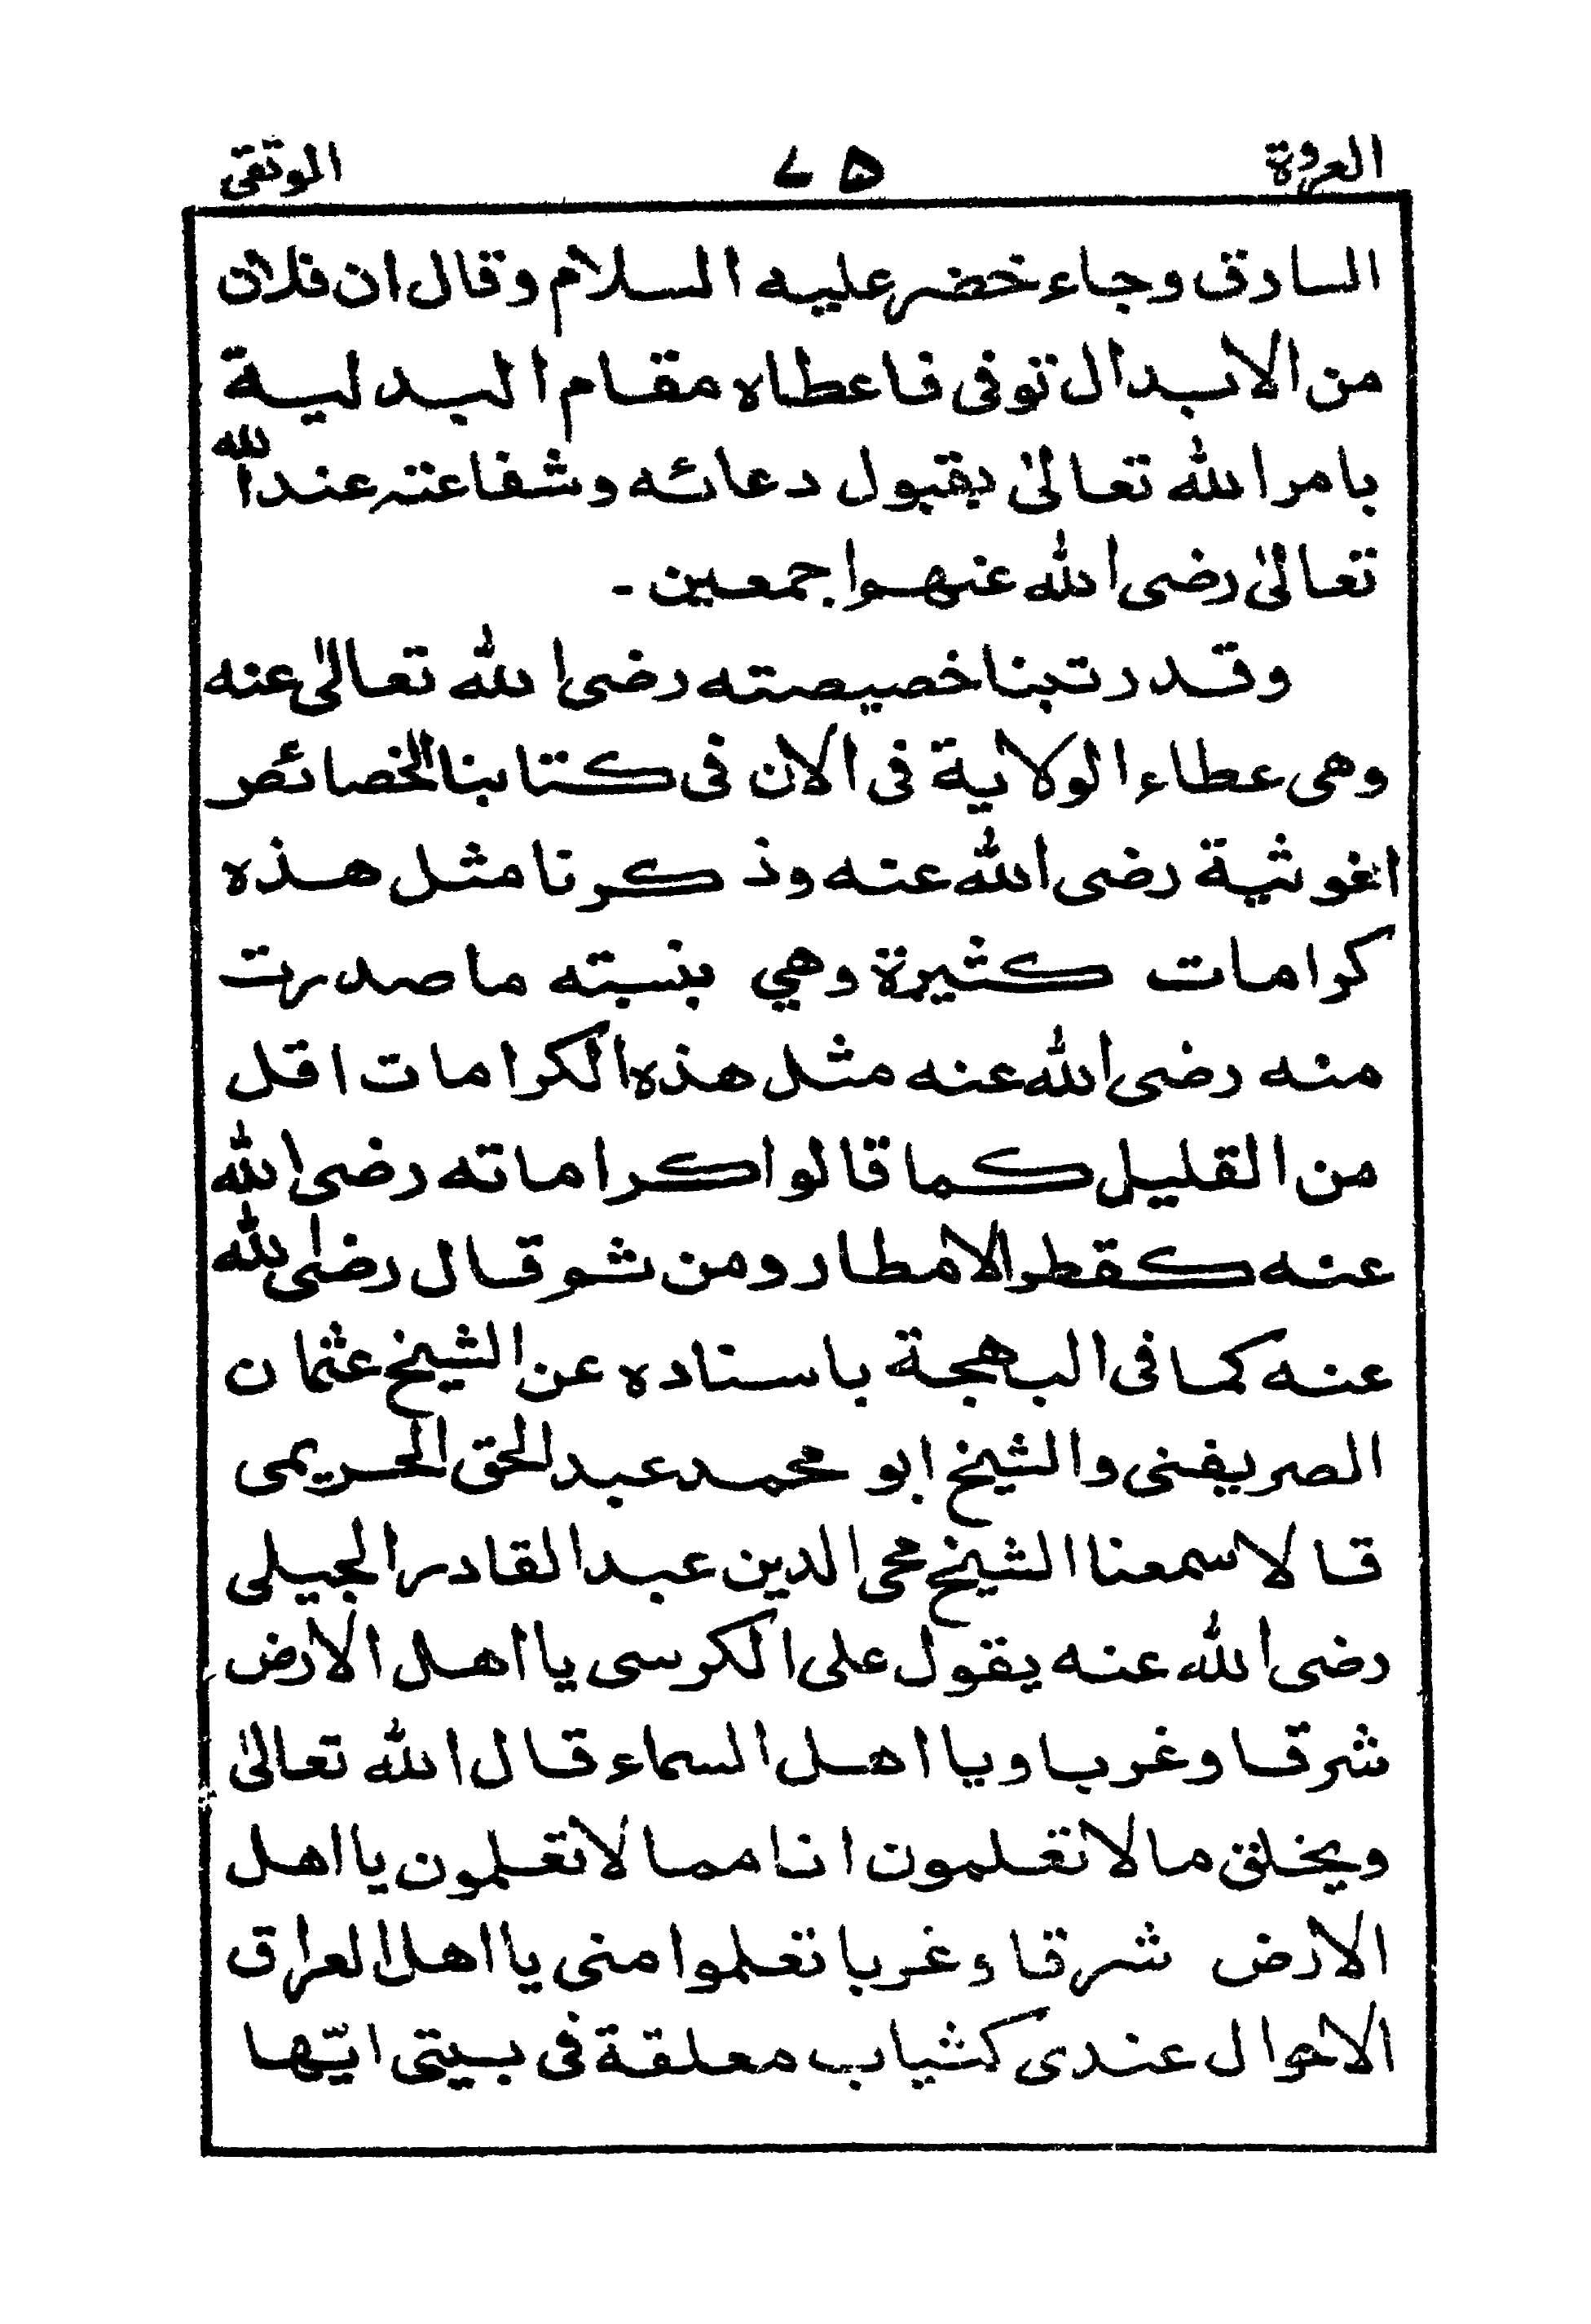 العروة ۷۵ الوثقى
السارق وجاء خضر عليه السلام وقال ان فلان
من الابدال توفى فاعطاه مقام البدلية
بامر الله تعالىٰ بقبول دعائه وشفاعته عند الله
تعالىٰ رضى الله عنهم اجمعين -
وقد رتبنا خصيصته رضى الله تعالىٰ عنه
وهى عطاء الولاية فى الان فى كتابنا الخصائص
اغوثية رضى الله عنه وذكرنا مثل هذه
كرامات كثيرة وهي بنسبته ما صدرت
منه رضى الله عنه مثل هذه الكرامات اقل
من القليل كما قالوا كراماته رضى الله
عنه كقطر الامطار ومن ثم قال رضى الله
عنه كما فى البهجة باسناده عن الشيخ عثمان
الصريفنى والشيخ ابو محمد عبد الحق الحريمى
قالا سمعنا الشيخ محى الدين عبد القادر الجيلى
رضى الله عنه يقول على الكرسى يا اهل الارض
شرقا وغربا ويا اهل السماء قال الله تعالىٰ
ويخلق ما لا تعلمون انا مما لا تعلمون يا اهل
الارض شرقا وغربا تعلموا منى يا اهل العراق
الاحوال عندى كثياب معلقة فى بيتى ايّها